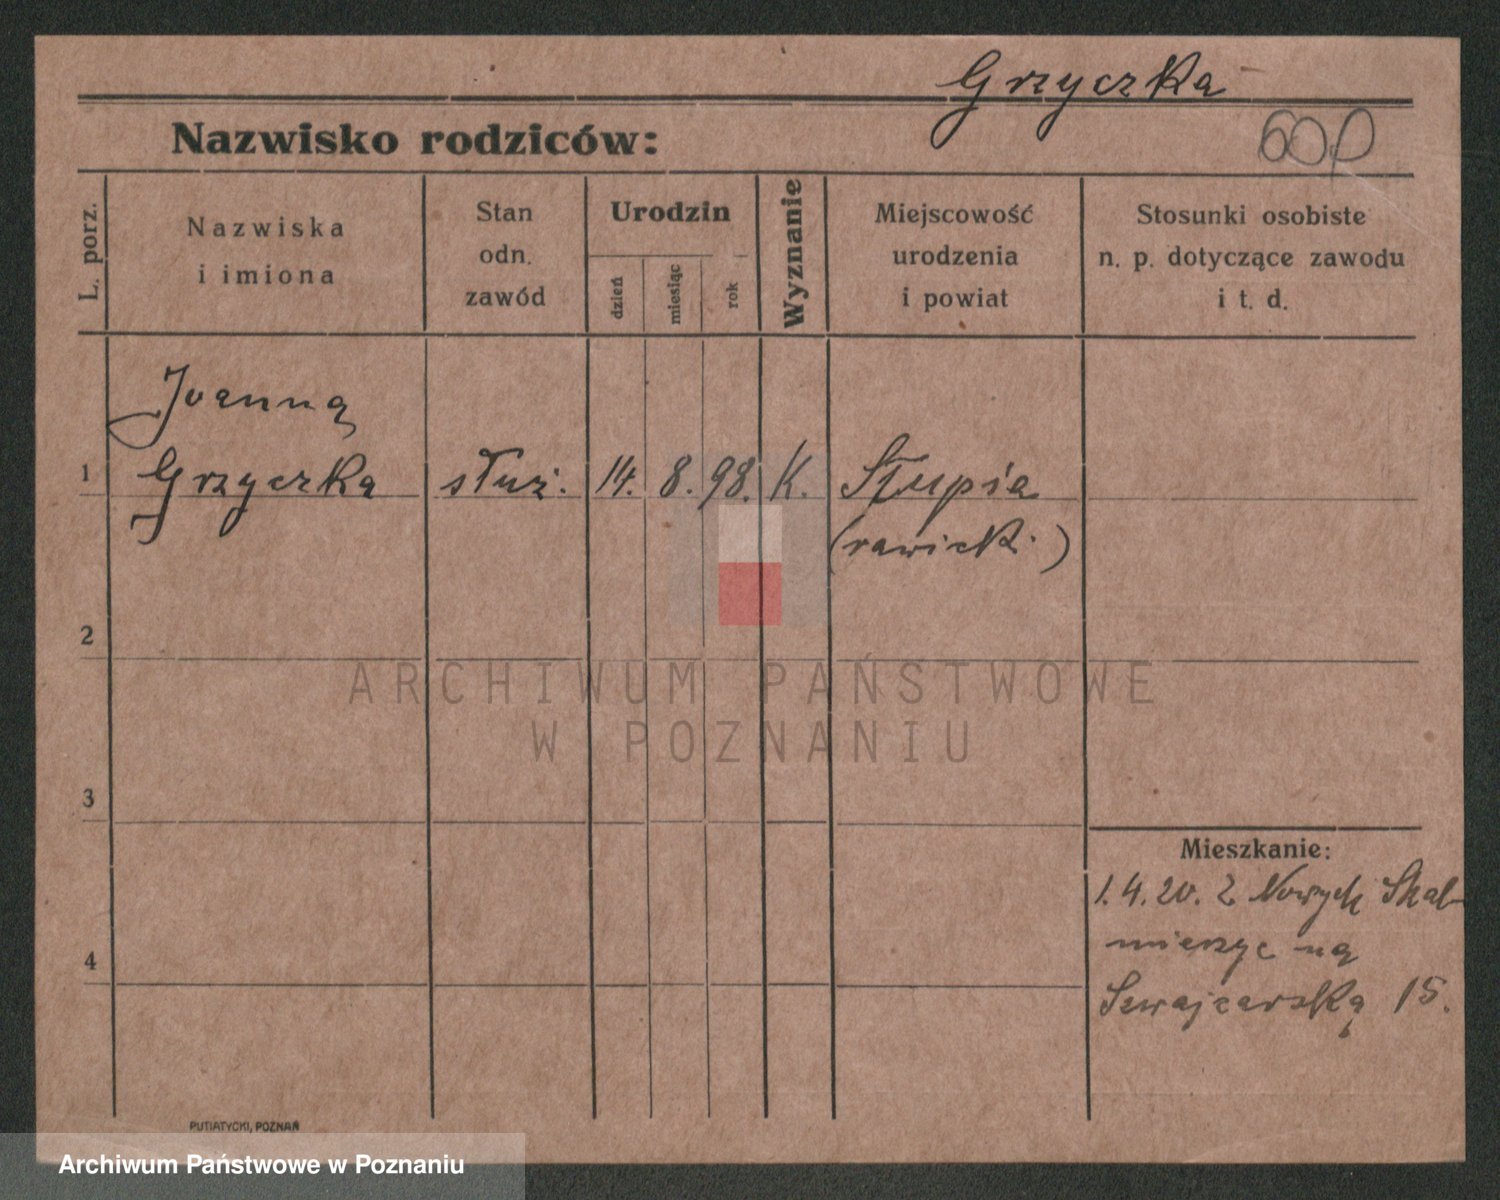 Grzyczka
60p
Nazwisko rodziców:
L. porz.
Nazwiska
i imiona
Stan
odn.
zawód
Urodzin
dzień
miesiąc
rok
Wyznanie
Miejscowość
urodzenia
i powiat
Stosunki osobiste
n. p. dotyczące zawodu
i t. d.
Joanna
1 Grzyczka służ. 14. 8. 98. K. Słupia
(rawick.)
2
ARCHIWUM PAŃSTWOWE
W POZNANIU
3
Mieszkanie:
1. 4. 20. z Nowych Skal-
mierzyc na
4
Szwajcarską 15.
PUTIATYCKI, POZNAŃ
Archiwum Państwowe w Poznaniu